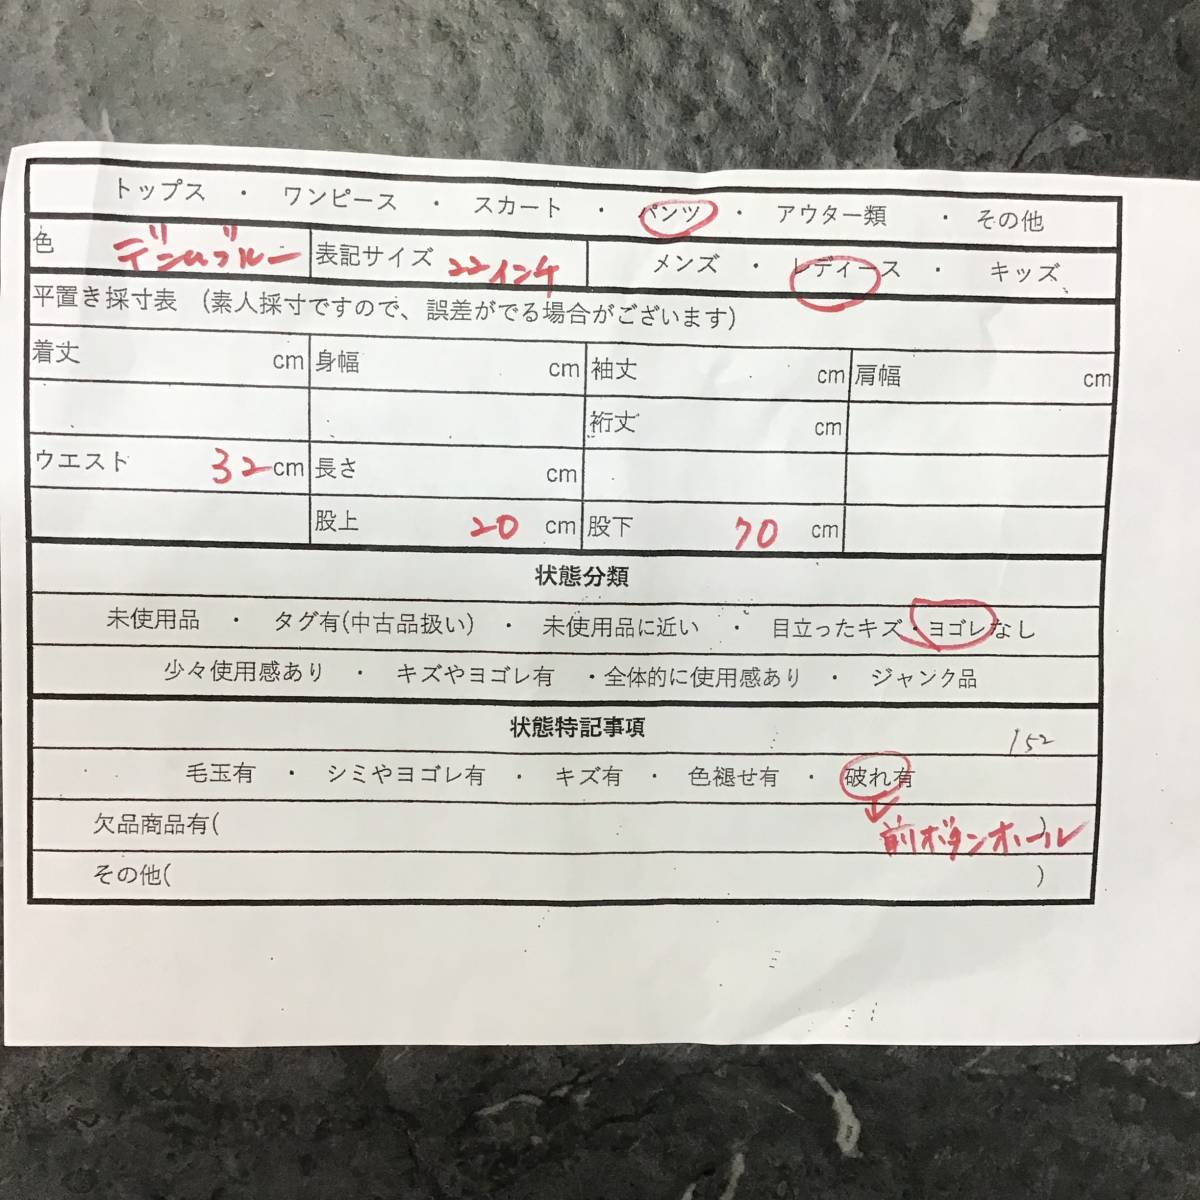 トップス ・ ワンピース ・ スカート ・ パンツ ・ アウター類 ・ その他
色 デニムブルー 表記サイズ 22インチ メンズ ・ レディース ・ キッズ
平置き採寸表 (素人採寸ですので、誤差がでる場合がございます)
着丈 cm 身幅 cm 袖丈 cm 肩幅 cm
裄丈 cm
ウエスト 32cm 長さ cm
股上 20 cm 股下 70 cm
状態分類
未使用品 ・ タグ有(中古品扱い) ・ 未使用品に近い ・ 目立ったキズ・ヨゴレなし
少々使用感あり ・ キズやヨゴレ有 ・全体的に使用感あり ・ ジャンク品
状態特記事項
152
毛玉有 ・ シミやヨゴレ有 ・ キズ有 ・ 色褪せ有 ・ 破れ有
欠品商品有( )
前ボタンホール
その他( )